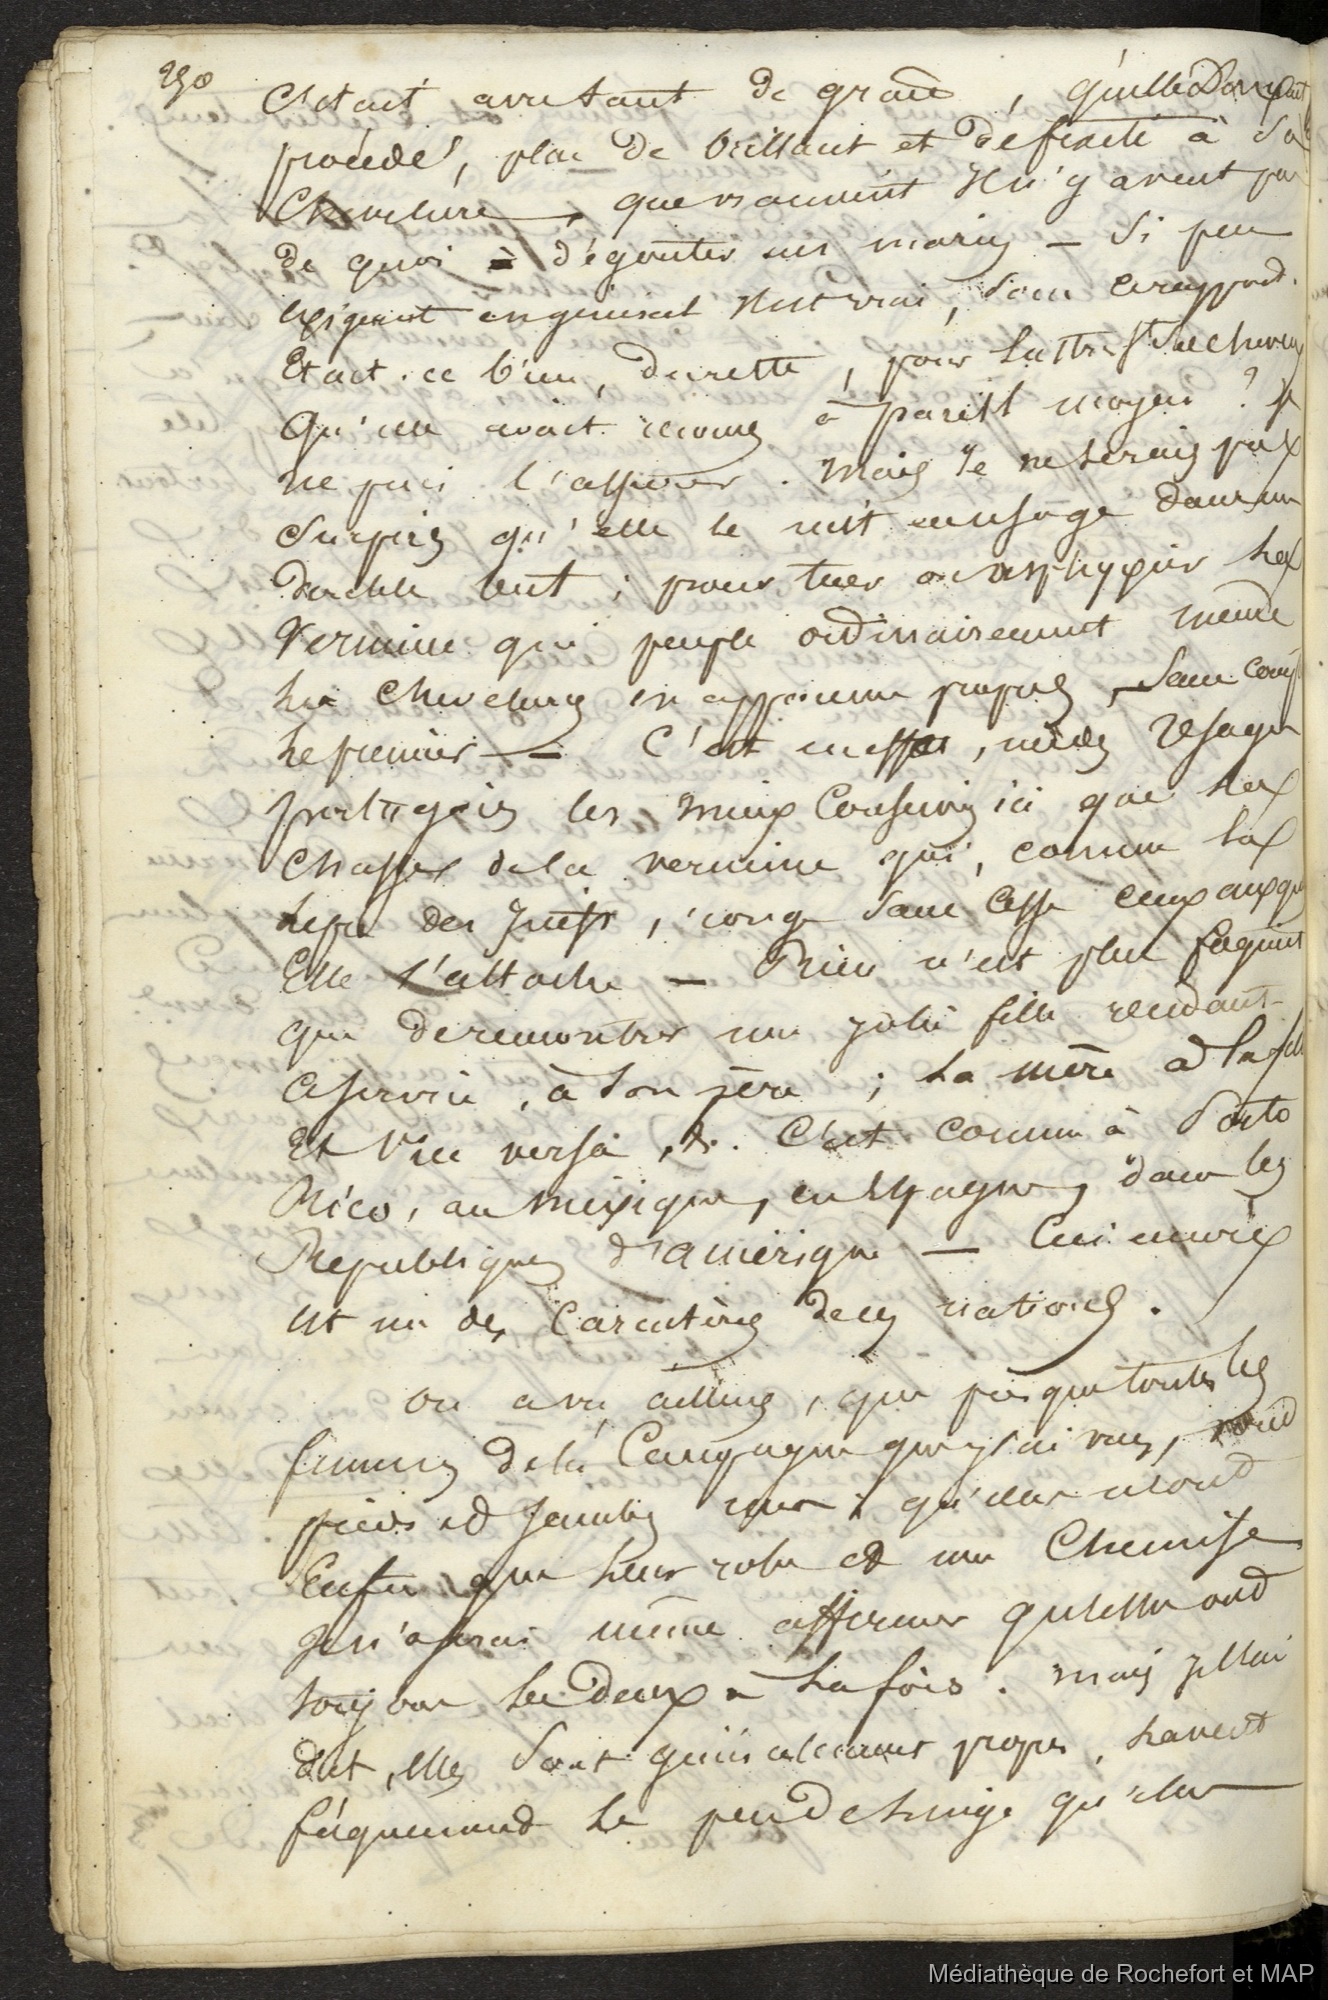 290
C'etait avec tant de grace, qu'elle Donnait
procédé, plus de brillant et de fixité à Sa
Chevelure, que vraiment Il n'y avait pas
de quoi à dégouter un marin — Si peu
exigeant en général Il est vrai, Sous ce rapport.
Etait-ce bien, du reste, pour lustrer Ses cheveux
Qu'elle avait recours à pareil moyen ? Je
ne puis l'assurer. Mais Je ne Serais pas
Surpris qu'elle le mit en usage dans un
double but ; pour tuer ou asphyxier la
Vermine qui peuple ordinairement même
les Chevelures en apparence propres, Sans
le premier — C'est en effet, un des Usages
portugais les mieux Conservés ici que la
Chasse de la vermine qui, comme la
lepre des Juifs, ronge Sans Cesse ceux auxquels
Elle s'attache — Rien n'est plus fréquent
que de rencontrer une jolie fille rendant
Ce service, à Son père ; la mère à la fille
Et Vice versa, &. C'est comme à Porto
Rico, au Mexique, en Espagne, dans les
Republiques d'amérique —
est un des Caractères de ces nations.
On a vu, ailleurs, que presque toutes les
femmes de la Campagne que j'ai vues, vont
pieds et Jambes nus ; qu'elles n'ont
Enfin que leur robe et une Chemise
Je n'oserai même affirmer qu'elles ont
toujours les deux à la fois. Mais je l'ai
dit, elles Sont généralement propres, lavent
fréquemment le peu de linge qu'elles
Médiathèque de Rochefort et MAP